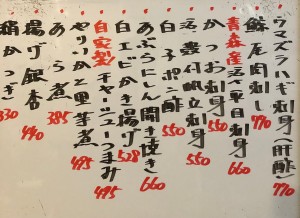 ウマズラハギ刺身(肝酢) 770
鯨尾肉刺し 770
青森産活平目刺身 660
かつお刺身 550
活〆豊付帆立刺身 550
白子ポン酢 550
あぶらにしん開き焼き 660
白エビかき揚げ 528
自家製チャーシューつまみ 495
やりいかと里芋煮 495
あら煮 385
揚げ銀杏 440
鯛かつ 330